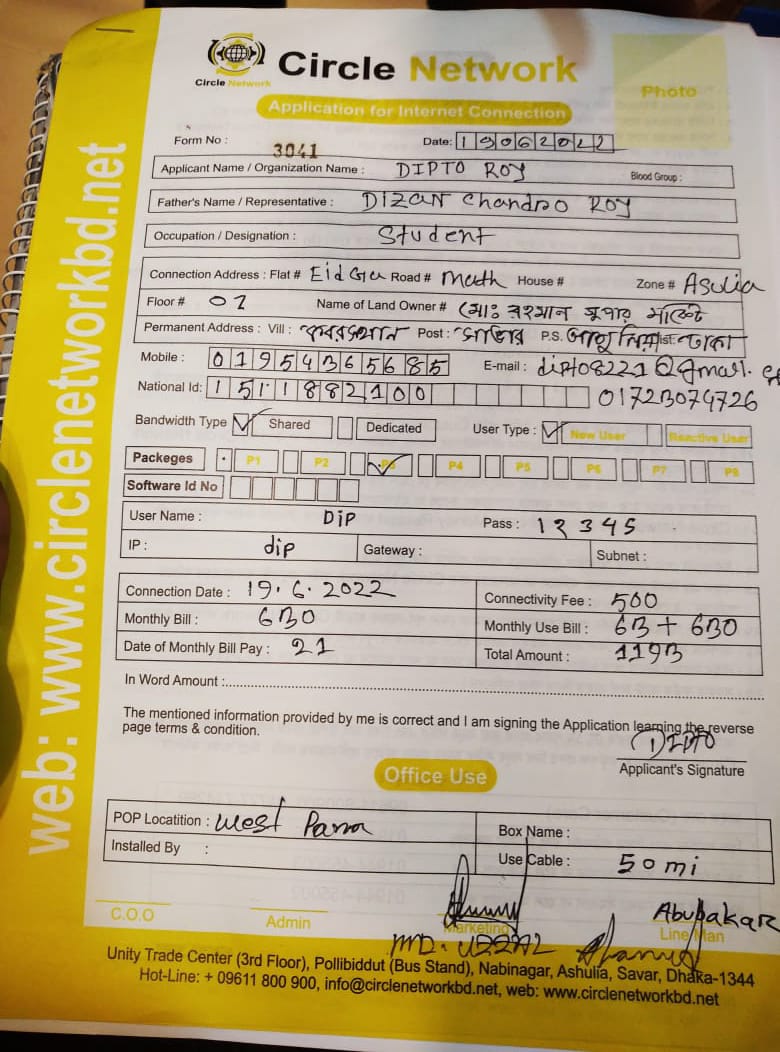 Circle Network
Circle Network
Photo
Application for Internet Connection
Form No : 3041 Date: 19062022
Applicant Name / Organization Name : DIPTO ROY Blood Group :
Father's Name / Representative : Dizan Chandro ROY
Occupation / Designation : Student
Connection Address : Flat # Eid Ga Road # math House # Zone # Asulia
Floor # 01 Name of Land Owner # মোঃ রহমান সুপার মার্কেট
Permanent Address : Vill : Post : P.S. ঢাকা
Mobile : 01954365685 E-mail : dipto8221@gmail.
National Id: 1511882100 01723074726
Bandwidth Type Shared Dedicated User Type : New User Reactive User
Packeges P1 P2 P3 P4 P5 P6 P7 P8
Software Id No
User Name : Dip Pass : 12345
IP : dip Gateway : Subnet :
Connection Date : 19.6.2022 Connectivity Fee : 500
Monthly Bill : 630 Monthly Use Bill : 63 + 630
Date of Monthly Bill Pay : 21 Total Amount : 1193
In Word Amount :
The mentioned information provided by me is correct and I am signing the Application learning the reverse
page terms & condition.
DIPTO
Applicant's Signature
Office Use
POP Locatition : West Para Box Name :
Installed By : Use Cable : 50 mi
Abubakar
C.O.O Admin Marketing Line Man
MD. UZZAL
Unity Trade Center (3rd Floor), Pollibiddut (Bus Stand), Nabinagar, Ashulia, Savar, Dhaka-1344
Hot-Line: + 09611 800 900, info@circlenetworkbd.net, web: www.circlenetworkbd.net
web: www.circlenetworkbd.net